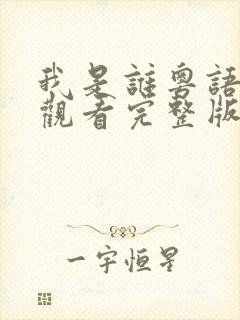 我是誰粵語
觀看完整版
一宇恒星